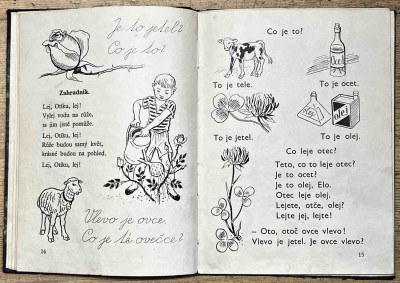 Je to jetel?
Co je to?
Zahradník.
Lej, Otíku, lej!
Vylej vodu na růže,
ta jim jistě pomůže.
Lej, Otíku, lej!
Růže budou samý květ,
krásné budou na pohled.
Lej, Otíku, lej!
Vlevo je ovce.
Co je té ovečce?
14
Co je to?
Ocet
To je tele.
To je ocet.
olej
To je jetel.
To je olej.
Co leje otec?
Teto, co to leje otec?
Je to ocet?
Je to olej, Elo.
Otec leje olej.
Lejete, otče, olej?
Lejte jej, lejte!
– Oto, otoč ovce vlevo!
Vlevo je jetel. Je ovce vlevo?
15